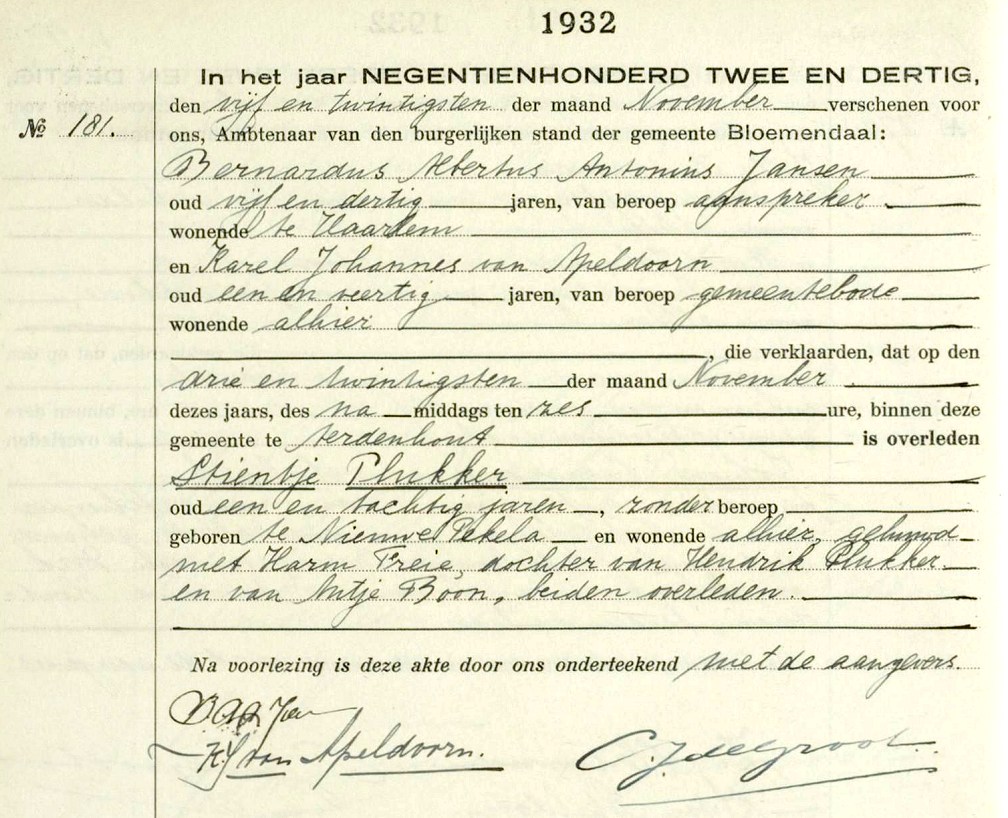 1932
In het jaar NEGENTIENHONDERD TWEE EN DERTIG,
den vijf en twintigsten der maand November verschenen voor
№ 181.
ons, Ambtenaar van den burgerlijken stand der gemeente Bloemendaal:
Bernardus Albertus Antonius Jansen
oud vijf en dertig jaren, van beroep aanspreker
wonende te Haarlem
en Karel Johannes van Apeldoorn
oud een en veertig jaren, van beroep gemeentebode
wonende alhier
, die verklaarden, dat op den
drie en twintigsten der maand November
dezes jaars, des na middags ten zes ure, binnen deze
gemeente te Aerdenhout is overleden
Stientje Plukker
oud een en tachtig jaren, zonder beroep,
geboren te Nieuwe Pekela en wonende alhier, gehuwd
met Harm Freie, dochter van Hendrik Plukker
en van Antje Boon, beiden overleden.
Na voorlezing is deze akte door ons onderteekend met de aangevers.
KJ van Apeldoorn.
C.J. de Groot.